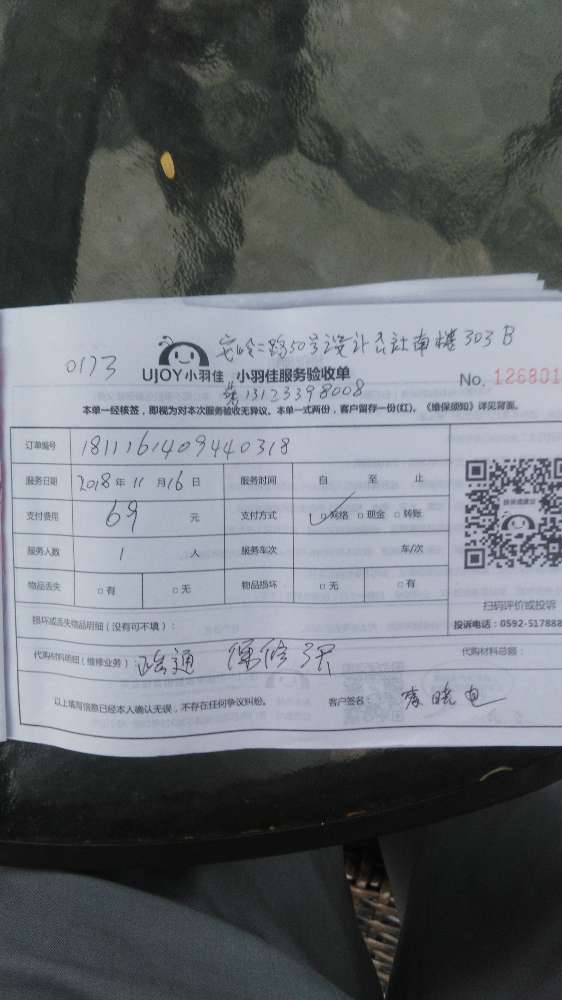 0173
安岭二路50号设计公社南楼303B
UJOY小羽佳 小羽佳服务验收单
No. 126801
13123398008
本单一经核签，即视为对本次服务验收无异议。本单一式两份，客户留存一份(红)。《维保须知》详见背面。
订单编号 1811161409440318
服务日期 2018年11月16日 服务时间 自 至 止
支付费用 69 元 支付方式 ✓□网络 □现金 □转账
服务人数 1 人 服务车次 车/次
物品丢失 □有 □无 物品损坏 □无 □有
扫码评价或投诉
损坏或丢失物品明细（没有可不填）：
投诉电话：0592-517888
代购材料明细（维修业务） 疏通 保修3天 代购材料总额：
以上填写信息已经本人确认无误，不存在任何争议纠纷。 客户签名：